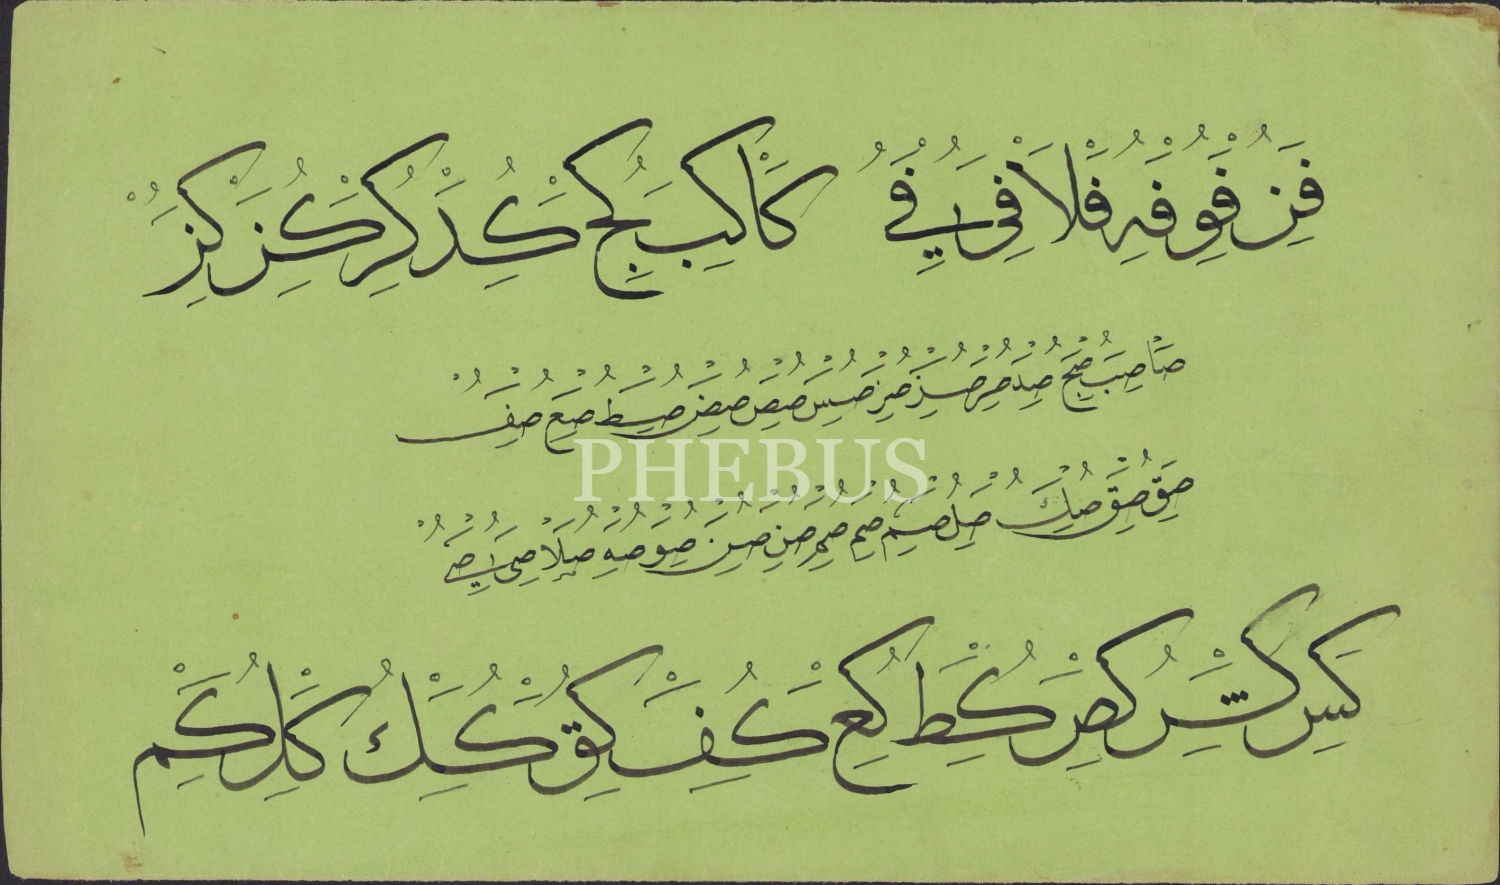 فن فو فه فلا في في كا كب كج كد كر كن كز
صا صب صج صد صر صذ صز صس صص صض صط صع صف
صق صق صك صل صم صم صم صن صن صو صه صلا صي صي
PHEBUS
كس كش كص كط كع كف كق كك كل كم